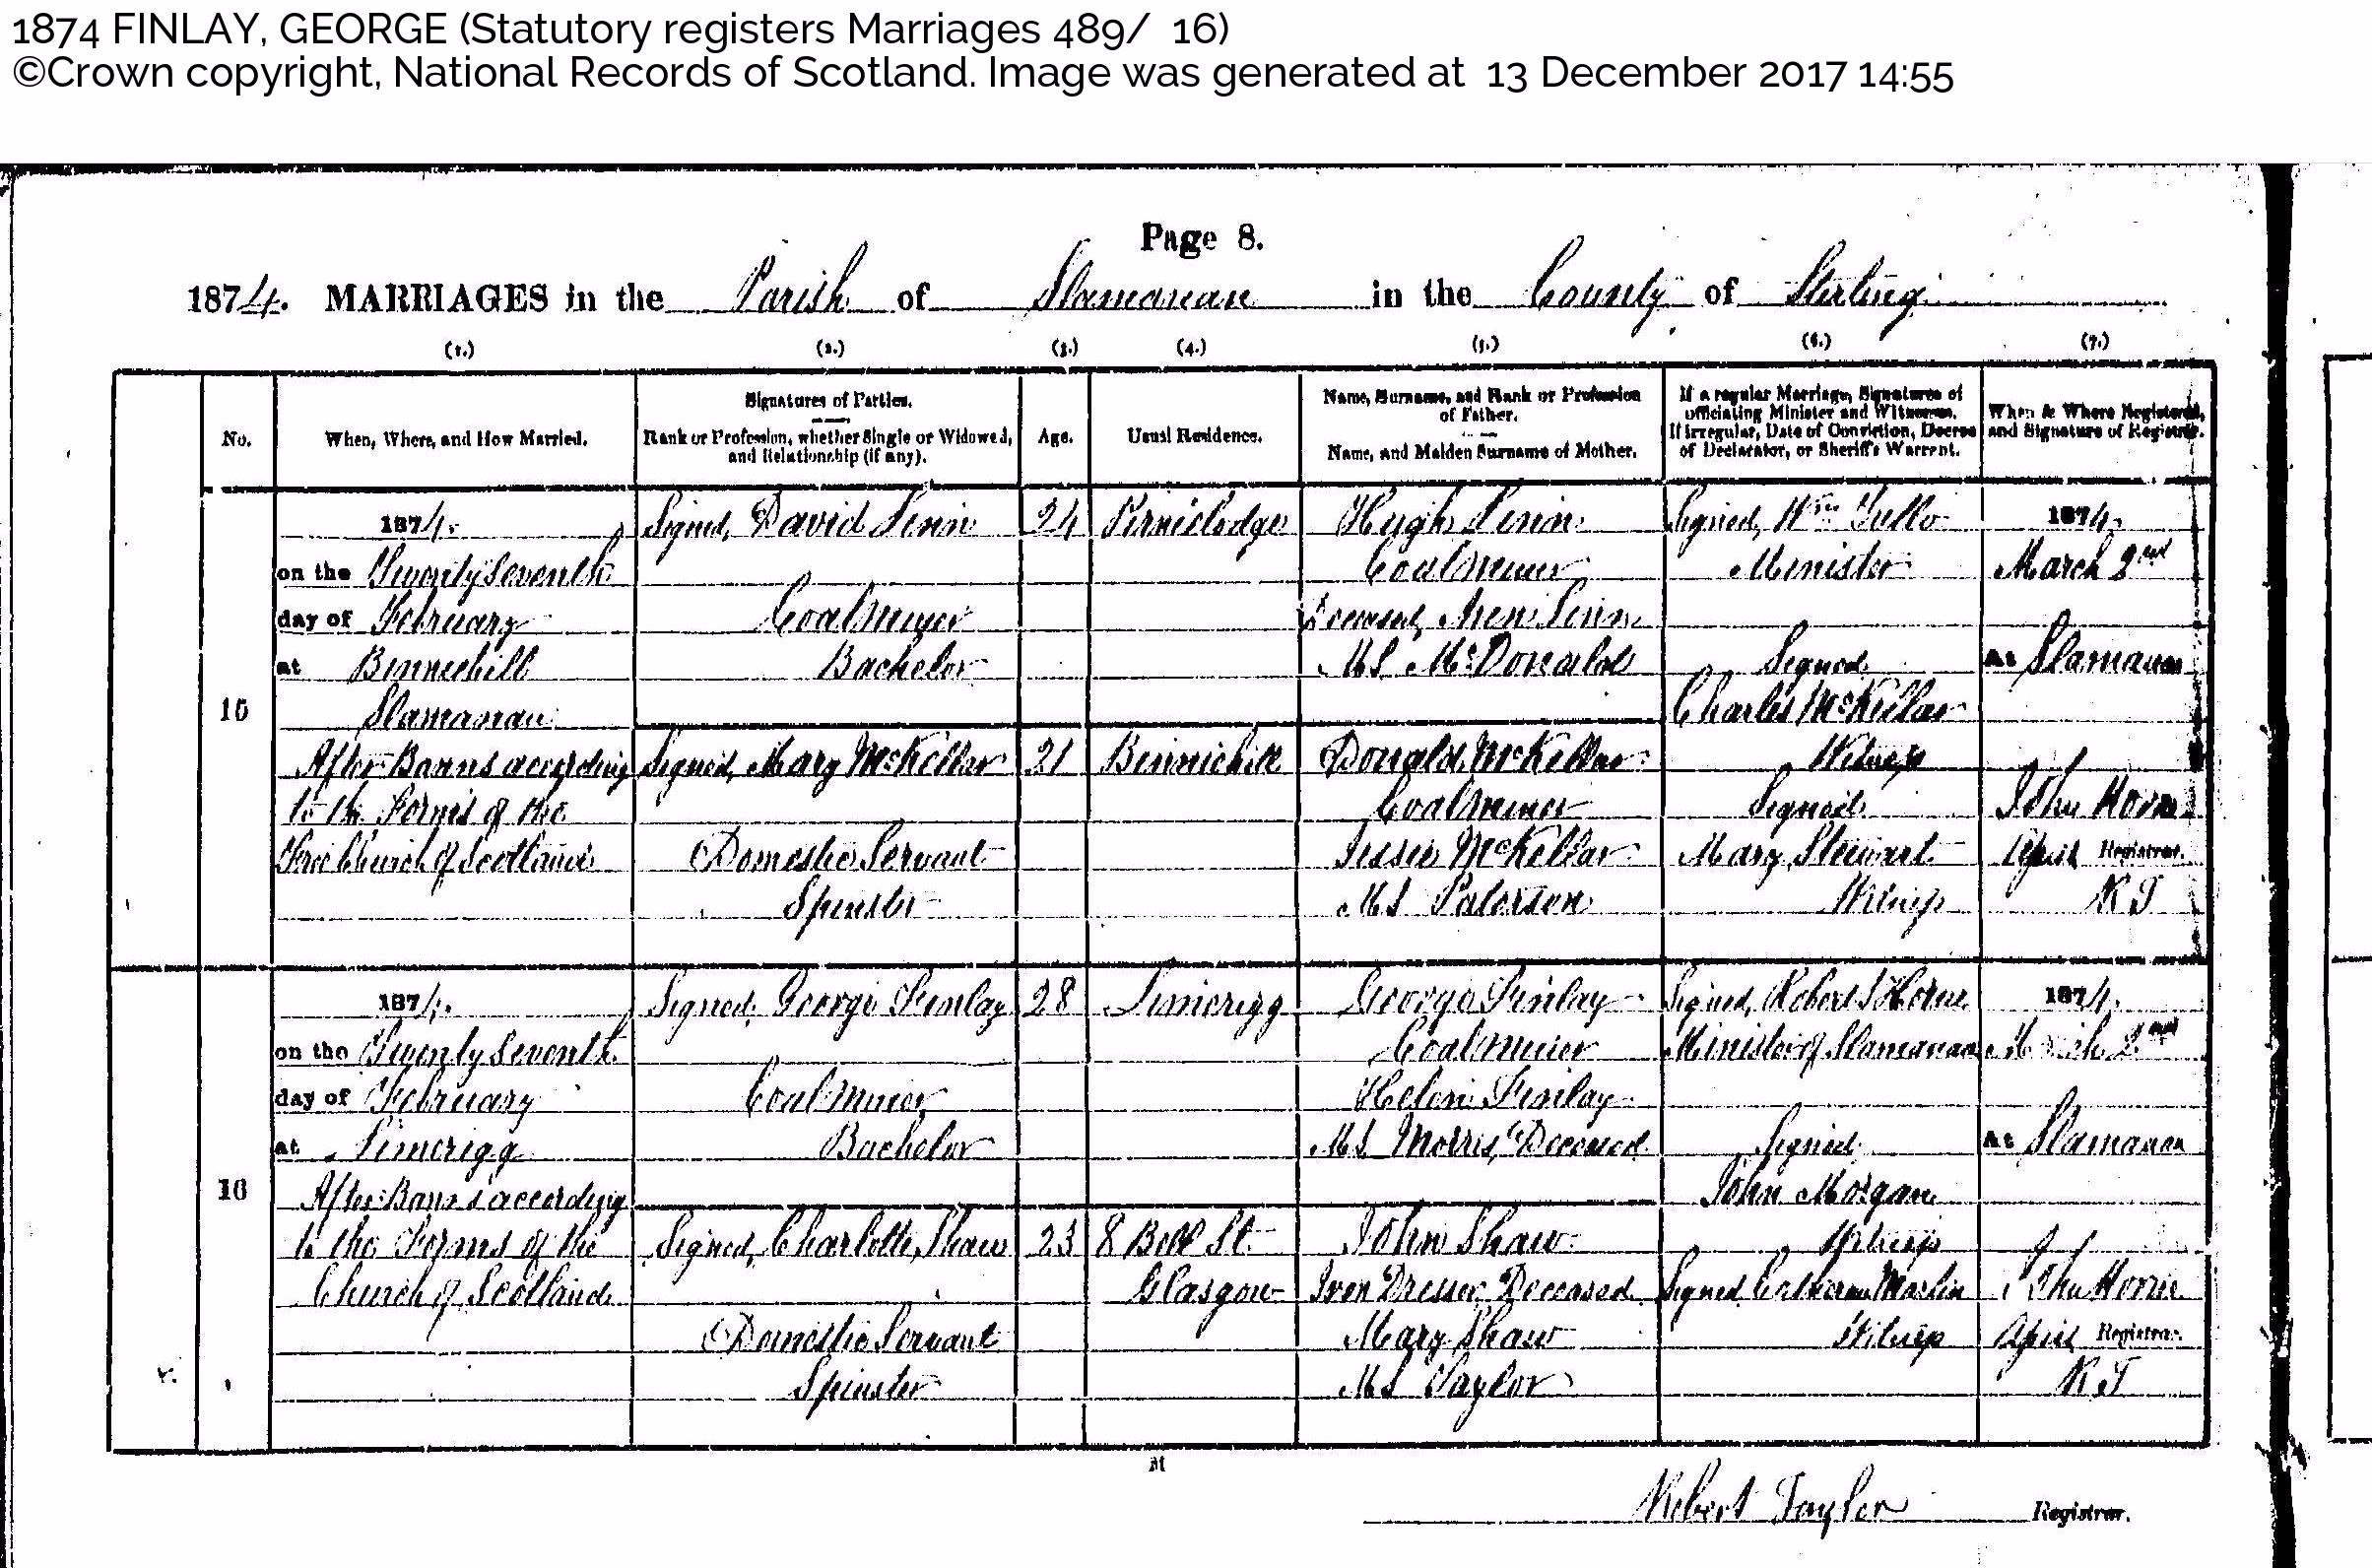 1874 FINLAY, GEORGE (Statutory registers Marriages 489/ 16)
©Crown copyright, National Records of Scotland. Image was generated at 13 December 2017 14:55
Page 8.
1874. MARRIAGES in the Parish of Slamanan in the County of Stirling
(1.) (2.) (3.) (4.) (5.) (6.) (7.)
No.
When, Where, and How Married.
Signatures of Parties.
Rank or Profession, whether Single or Widowed,
and Relationship (if any).
Age.
Usual Residence.
Name, Surname, and Rank or Profession
of Father.
Name, and Maiden Surname of Mother.
If a regular Marriage, Signatures of
officiating Minister and Witnesses.
If irregular, Date of Conviction, Decree
of Declarator, or Sheriff's Warrant.
When & Where Registered,
and Signature of Registrar.
15
1874.
on the Twenty Seventh
day of February
at Binniehill
Slamanan
After Banns according
to the Forms of the
Free Church of Scotland
Signed, David Linn
Coalminer
Bachelor
Signed, Mary McKellar
Domestic Servant
Spinster
24
21
Pirnielodge
Binniehill
Hugh Linn
Coalminer
Deceased, Linn
M.S. McDonald
Donald McKellar
Coalminer
Jessie McKellar
M.S. Paterson
Signed, Wm
Minister
Signed
Charles McKellar
Witness
Signed
Mary Stewart
Witness
1874.
March 2nd
At Slamanan
John Horne
Registrar.
16
1874.
on the Twenty Seventh
day of February
at Limerigg
After Banns according
to the Forms of the
Church of Scotland
Signed, George Finlay
Coalminer
Bachelor
Signed, Charlotte Shaw
Domestic Servant
Spinster
28
23
Limerigg
8 Bell St.
Glasgow
George Finlay
Coalminer
Helen Finlay
M.S. Morris, Deceased
John Shaw
Iron Dresser Deceased
Mary Shaw
M.S. Taylor
Signed, Robert S Horne
Minister of Slamanan
Signed
John Morgan
Witness
Signed Catherine Martin
Witness
1874.
March 2nd
At Slamanan
John Horne
Registrar.
Robert Taylor Registrar.